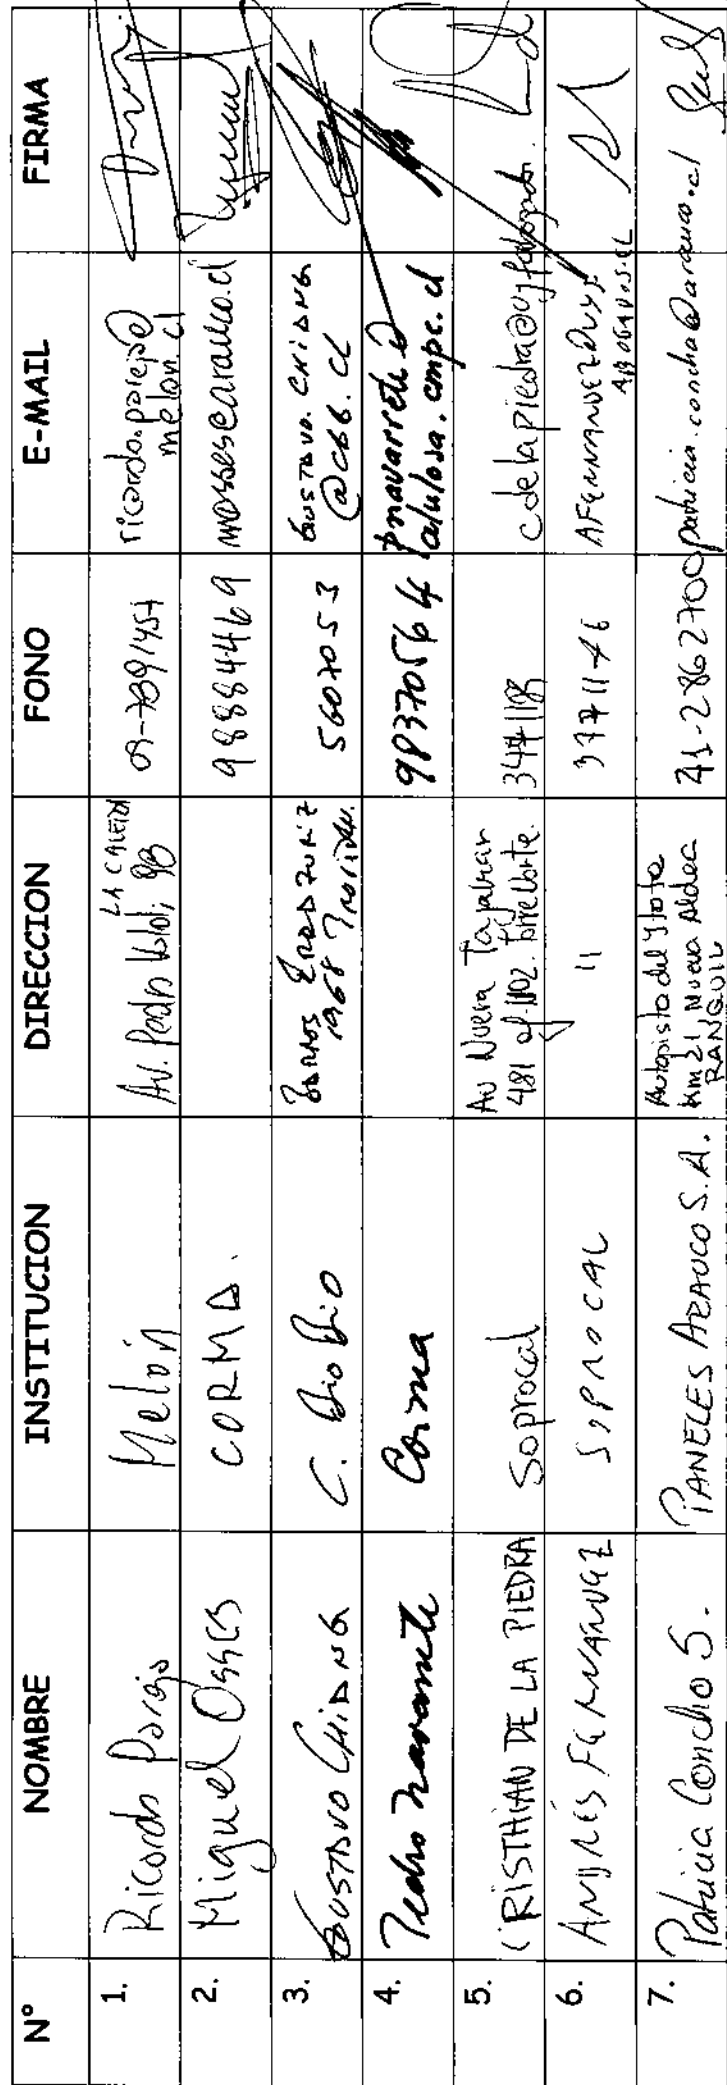 N° NOMBRE INSTITUCION DIRECCION FONO E-MAIL FIRMA
1. Ricardo Parejo Melón Av. Pedro 98 LA CALERA ricardo.parejo@
melon.cl
2. Miguel Osses CORMA. 98884469
3. GUSTAVO CHIANG C. Bio Bio 1968 5607053 GUSTAVO.CHIANG
@CBB.CL
4. Pedro Navarrete Corma 98370564 pnavarrete@
celulosa.cmpc.cl
5. CRISTHIAN DE LA PIEDRA Soprocal Av Nueva Tajamar
481 of. 1102. Torre Norte.
6. ANDRÉS FERNANDEZ SOPROCAL " AFERNANDEZ@
ABOGADOS.CL
7. Patricia Concha S. PANELES ARAUCO S.A. Autopista del Itata
km 21 Nueva Aldea
RANQUIL 41-2862700 patricia.concha@arauco.cl